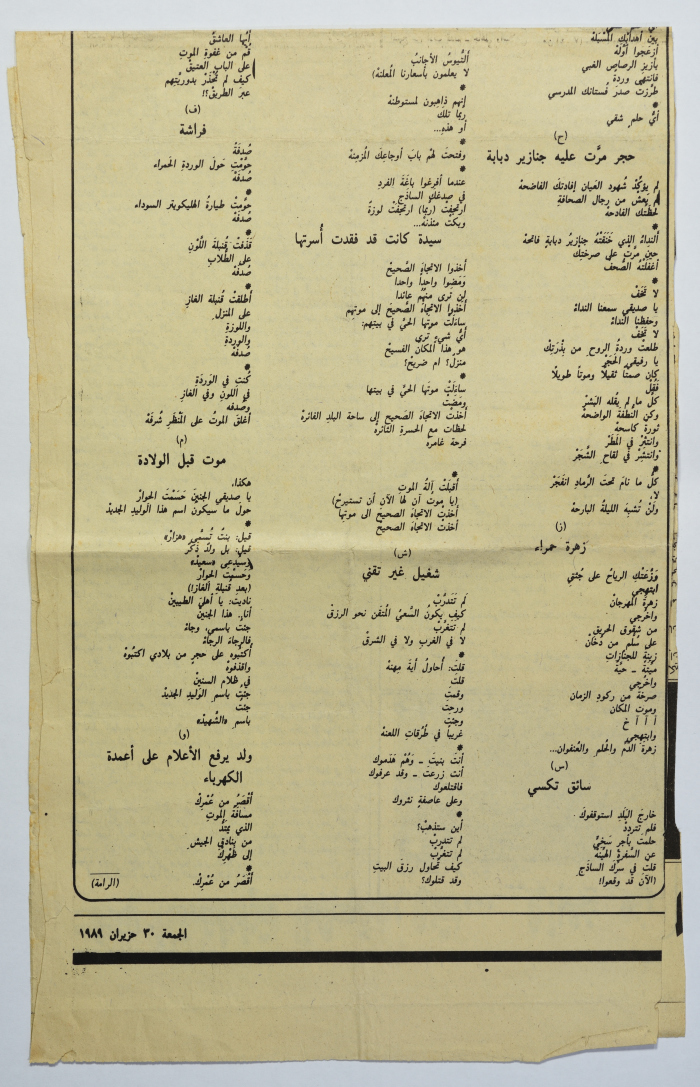 بين أهدابك المسبلة
أزعجوا أوّله
بأزيز الرصاص الغبي
فانتهى وردة
طرّزت صدرَ فُستانك المدرسي
*
أيُّ حلم شقي
(ح)
حجر مرَّت عليه جنازير دبابة
لم يؤكِّدْ شهود العَيان إفادتك الفاضحة
لم يَعِش من رجال الصحافةِ
لحظتَك الفادحة
*
ألنداءُ الذي خَنَقَتْهُ جنازيرُ دبابةٍ فاتحة
حينَ مرَّتْ على صرختِك
أغفلَتْهُ الصُّحُفْ
*
لا تَخَفْ
يا صديقي سمعنا النداءْ
وحفظنا النداءْ
لا تَخَفْ
طلعتْ وردةُ الروحِ من بذْرَتِكْ
يا رفيقي الحَجَرْ
كان صمتاً ثقيلاً وموتاً طويلاً
فَقُلْ
كلَّ ما لم يقله البَشَرْ
وكنِ النُّطفةَ الواضحة
ثورةً كاسحة
وانتثِرْ في المطرْ
وانتشِرْ في لقاحِ الشَّجَرْ
*
كلُّ ما نامَ تحتَ الرَّمادِ انفَجَرْ
لا.
ولَنْ تُشبهَ الليلةُ البارحة
(ز)
زهرة حمراء
وَزَّعَتْكِ الرياحُ على جُثتي
ابتهجي
زهرةَ المهرجانْ
واخرجي
من شقوق الحريقِ
على سلّمٍ من دخّانْ
زينةً للجنازاتِ
ميّتةً - حيّةً
واخرُجي
صرخةً من ركودِ الزمان
وموتِ المكان
أ أ أ خ
وابتهجي
زهرةَ الدّم والحُلم والعُنفوان...
(س)
سائق تكسي
خارجَ البَلَدِ استوقفوكَ
فلم تتردّدْ
حلمتَ بأجرٍ سَخِيٍّ
عن السَّفرةِ الهيّنة
قلتَ في سرِّك الساذَجِ
(الآنَ قد وقعوا!
ألتُّيوسُ الأجانبُ
لا يعلمون بأسعارنا المُعلنة)
*
إنهم ذاهبون لمستوطنة
ربّما تلكَ
أو هذهِ...
*
وفتحتَ لهُم بابَ أوجاعِكَ المُزمِنة
*
عندما أفرغوا باغَةَ الفردِ
في صدغكَ الساذَجِ
ارتجفَتْ (ربّما) ارتجفَتْ لوزةٌ
وبكَتْ مئذنة..
سيدة كانت قد فقدت أُسرتها
أخذوا الاتجاهَ الصَّحيحْ
وَمَضوا واحداً واحداً
لن ترى منهُم عائداً
أخَذوا الاتجاهَ الصَّحيحَ إلى موتهم
ساءَلَت موتَها الحيَّ في بيتِهِم:
أيَّ شيءٍ ترى
هو هذا المكان الفسيحْ
منزلٌ؟ ام ضريحْ؟
*
ساءَلَتْ موتَها الحيَّ في بيتها
ومَضَتْ
أخذَتْ الاتجاهَ الصَّحيح إلى ساحة البلدِ الفائرة
لحظات مع الحسرةِ الثائرة
فرحة غامرة
*
أقبلَتْ آلةُ الموتِ
(يا موتُ آنَ لها الآن أن تستريحْ)
أخذَت الاتجاهَ الصحيحَ الى موتها
أخذَت الاتجاهَ الصحيحْ
(ش)
شغيل غير تقني
لم تَتَدرَّبْ
كيفَ يكونُ السَّعيُ المُتقَن نحو الرزقْ
لم تتغرَّبْ
لا في الغربِ ولا في الشرقْ
*
قلتَ: أُحاولُ أيةَ مِهنة
قلتَ
وقمتَ
ورحتَ
وجئتَ
غريباً في طُرُقاتِ اللعنة
*
أنتَ بنيتَ ـ وَهُمْ هَدَموك
أنت زرعتَ ـ وقد عرفوك
فاقتلعوك
وعلى عاصفةٍ نثروك
*
أين ستذهبْ؟
لم تتدربْ
لم تتغرَّبْ
كيف تُحاول رزقَ البيتِ
وقد قتلوك؟
إنّها العاشقُ
قُم من غفوةِ الموتِ
على البابِ العتيقْ
كيف لم تَحْذَرْ بدوريّتِهم
عبرَ الطريقْ؟!
(ف)
فراشة
صُدفَةً
حَوَّمَتْ حَولَ الوردةِ الحمراء
صُدفَة
*
حوَّمتْ طيارةُ الهليكوبتر السوداء
صُدفة
*
قَذَفَتْ قنبلةَ اللَّوْنِ
على الطُّلاب
صُدفة
*
أطلقَتْ قنبلة الغازِ
على المنزلِ
واللوزةِ
والوردةِ
صُدفة
*
كُنتِ في الوردةِ
في اللونِ وفي الغازِ
وصُدفة
أغلقَ الموتُ على المنْظَرِ شُرفَة
(م)
موت قبل الولادة
هكذا.
يا صديقي الجنينَ حَسَمْتَ الحوارْ
حول ما سيكون اسم هذا الوليدِ الجديدْ
*
قيل: بنتٌ تُسمَّى «هزار»
قيل: بل ولدٌ ذَكَر
وسيُدعى «سعيد»
وحَسمْتَ الحوارْ
(بعد قُنبلةِ الغازْ!)
ناديتَ: يا أهليَ الطيبينْ
أنا.. هذا الجنينُ
جئتُ باسمي، وجاءْ
فالرجاءَ الرجاءْ
أكتُبوه على حجرٍ من بلادي اكتبُوه
واقذفوهْ
في ظلام السنينْ
جئتُ باسمِ الوليدِ الجديدْ
جئتُ
باسمِ «الشَّهيد»
(و)
ولد يرفع الأعلام على أعمدة
الكهرباء
أقْصَرُ من عُمْركْ
مسافةُ الموتِ
الذي يمتدُّ
من بنادقِ الجيش
إلى ظَهْركْ
*
أقْصَرُ من عُمْركْ.
(الرامة)
الجمعة ٣٠ حزيران ١٩٨٩